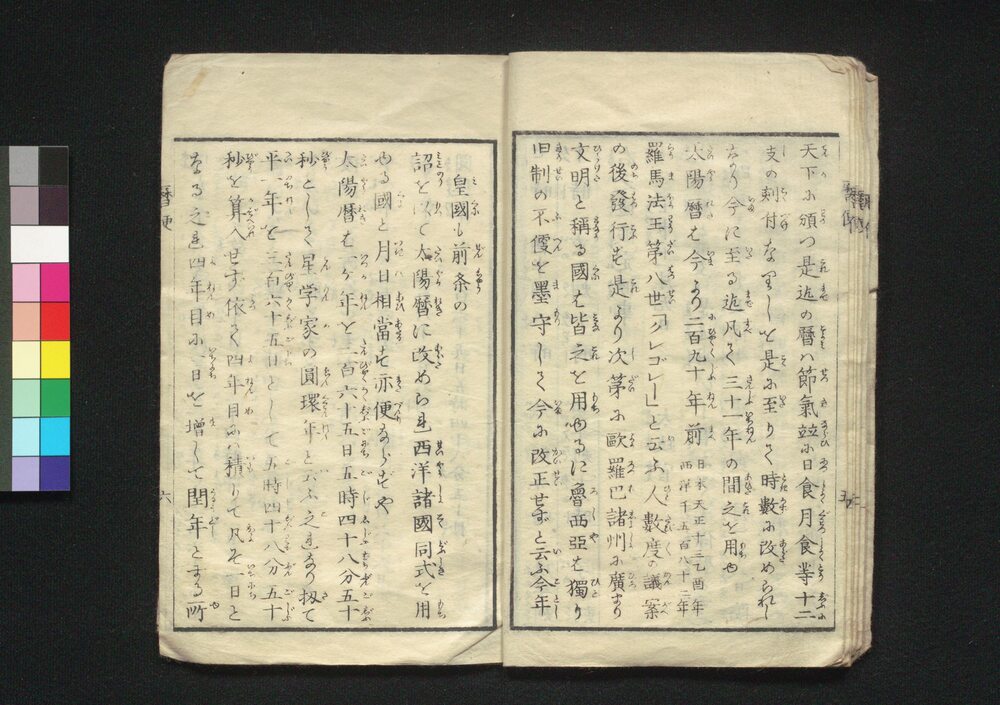 天下に頒つ是迄の暦ハ節氣並に日食月食等十二
支の刻付なりしを是に至りて時數に改められし
なり今に至る迄凡そ三十一年の間之を用ゆ
太陽暦も今より二百九十年前 日本天正十三乙酉年 西洋千五百八十二年
羅馬法王第八世「クレゴレー」と云ふ人數度の議案
の後發行す是より次第に歐羅巴諸州に廣まり
文明と稱る國は皆之を用ゆるに魯西亞は獨り
旧制の不便を墨守して今に改正せずと云ふ今年
皇國も前条の
詔を以て太陽暦に改めら連西洋諸國同式を用
ゆる國と月日相當す亦便ならずや
太陽暦は一ケ年を三百六十五日五時四十八分五十
秒とし星学家の圓環年と云ふ之連なり扨て
平一年を三百六十五日として五時四十八分五十
秒を算入せず依て四年目には積りて凡そ一日と
なる之連四年目に一日を増して閏年とする所
暦便
六